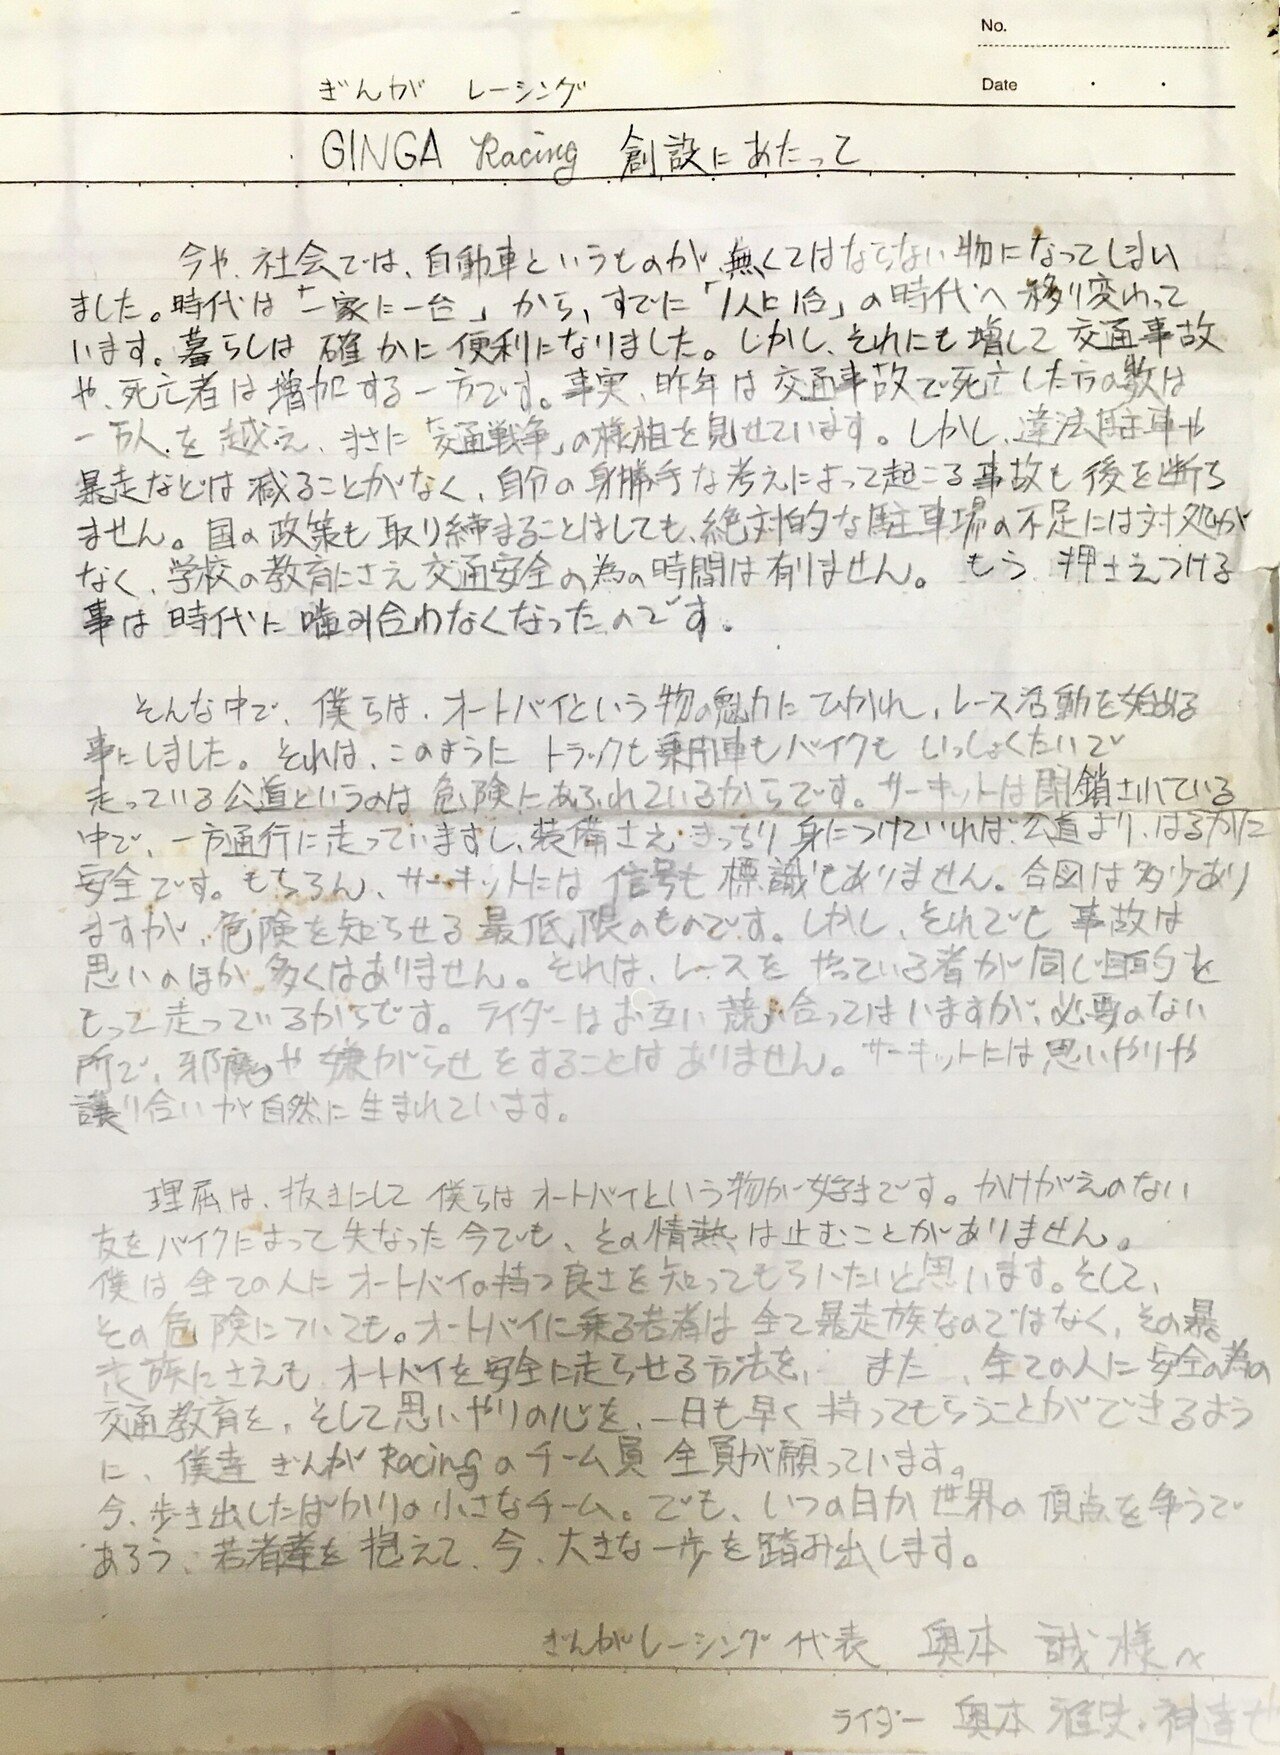 No.
Date ・ ・
ぎんが レーシング
GINGA Racing 創設にあたって
今や、社会では、自動車というものが、無くてはならない物になってしまい
ました。時代は「一家に一台」から、すでに「1人に1台」の時代へ移り変わって
います。暮らしは確かに便利になりました。しかし、それにも増して交通事故
や、死亡者は増加する一方です。事実、昨年は交通事故で死亡した方の数は
一万人を越え、まさに「交通戦争」の様相を見せています。しかし、違法駐車や
暴走などは減ることがなく、自分の身勝手な考えによって起こる事故も後を断ち
ません。国の政策も取り締まることはしても、絶対的な駐車場の不足には対処が
なく、学校の教育にさえ交通安全の為の時間は有りません。もう、押さえつける
事は時代に噛み合わなくなったのです。
そんな中で、僕らは、オートバイという物の魅力にひかれ、レース活動を始める
事にしました。それは、このように トラックも乗用車もバイクも いっしょくたいで
走っている公道というのは危険にあふれているからです。サーキットは閉鎖されている
中で、一方通行に走っていますし、装備さえ、きっちり身につけていれば、公道より、はるかに
安全です。もちろん、サーキットには信号も標識もありません。合図は多少あり
ますが、危険を知らせる最低限のものです。しかし、それでも事故は
思いのほか多くはありません。それは、レースをやっている者が同じ目的を
もって走っているからです。ライダーはお互い競い合ってはいますが、必要のない
所で、邪魔や嫌がらせをすることはありません。サーキットには思いやりや
譲り合いが自然に生まれています。
理屈は、抜きにして僕らはオートバイという物が好きです。かけがえのない
友をバイクによって失なった今でも、その情熱は止むことがありません。
僕は全ての人にオートバイの持つ良さを知ってもらいたいと思います。そして、
その危険についても。オートバイに乗る若者は全て暴走族なのではなく、その暴
走族にさえも、オートバイを安全に走らせる方法を、また、全ての人に安全の為の
交通教育を、そして思いやりの心を、一日も早く持ってもらうことができるよう
に、僕達ぎんがRacingのチーム員全員が願っています。
今、歩き出したばかりの小さなチーム。でも、いつの日か世界の頂点を争うで
あろう、若者達を抱えて、今、大きな一歩を踏み出します。
ぎんがレーシング代表 奥本 誠様へ
ライダー 奥本 雅史・神達也